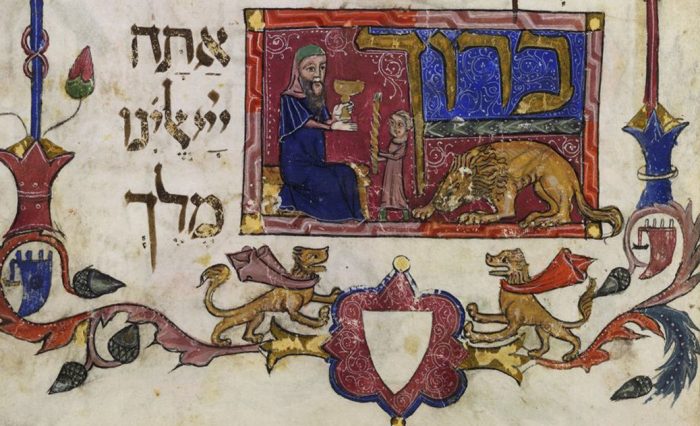 בָּרוּךְ
אַתָּה
יְיָ אֱלֹהֵינוּ
מֶלֶךְ